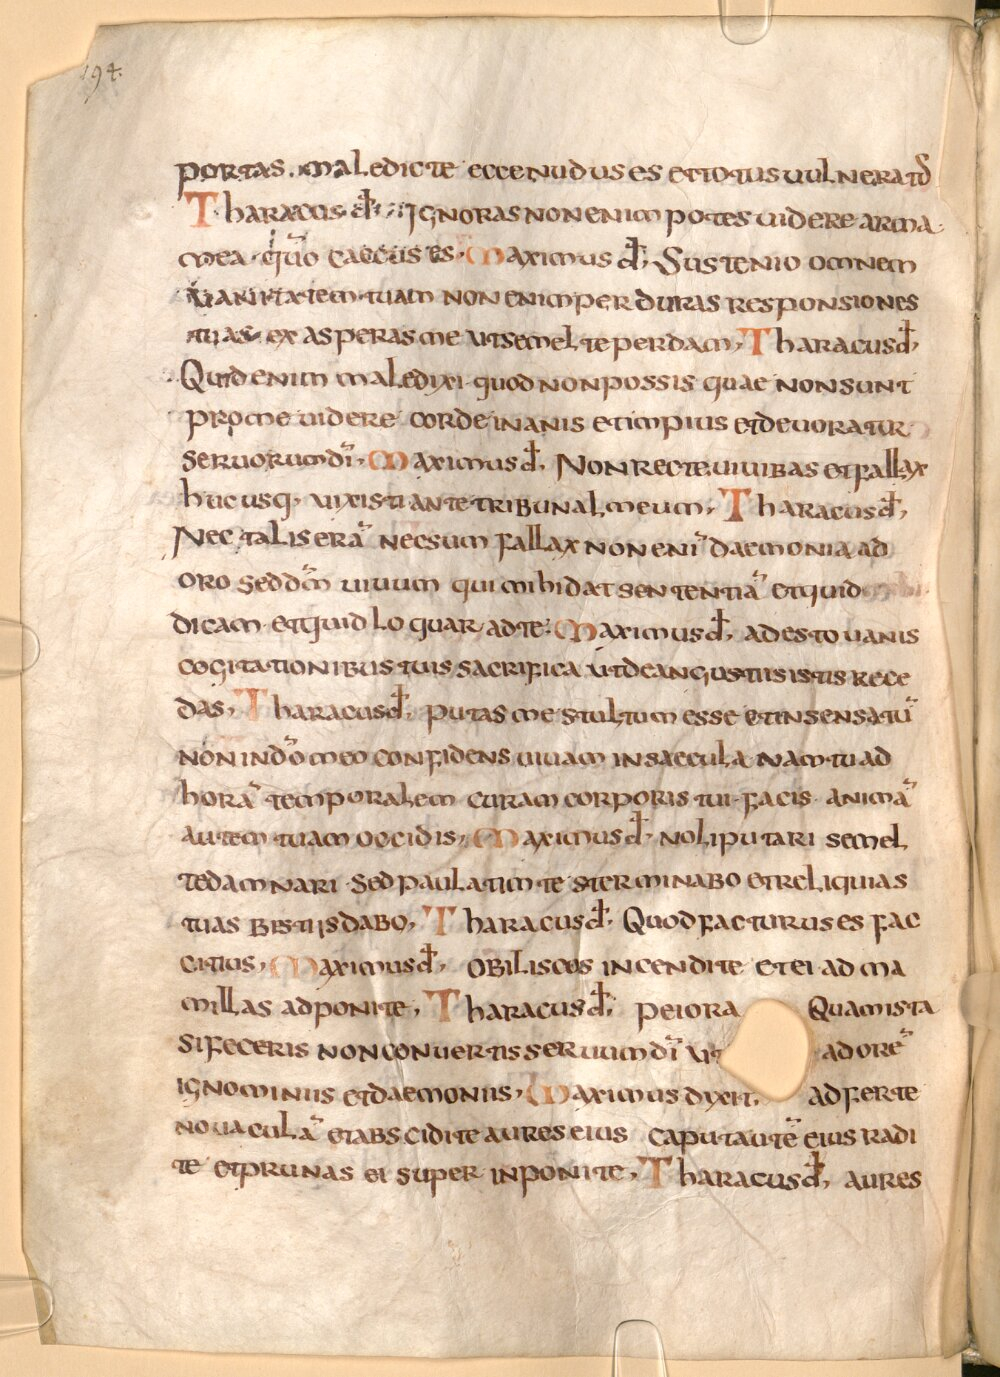 194.
portas. maledicte ecce nudus es et totus uulneratus
Tharacus đ, Ignoras non enim potes uidere arma
mea quo caecus es. Maximus đ, Sustenio omnem
uanitatem tuam non enim perduras responsiones
tuas exasperas me ut semel te perdam, Tharacus đ,
Quid enim maledixi quod non possis quae non sunt
pro me uidere corde inanis et impius et deuoratur
seruorum dī, Maximus đ, Non recte uiuibas et fallax
hucusq, uixisti ante tribunal meum, Tharacus đ,
Nec talis erā nec sum fallax non enī daemonia ad
oro sed dm̄ uiuum qui mihi dat sententiā et quid
dicam et quid loquar ad te: Maximus đ, adesto uanis
cogitationibus tuis sacrifica ut de angustiis istis rece
das, Tharacus đ, putas me stultum esse et insensatū
non in dō meo confidens uiuam in saecula nam tu ad
horā temporalem curam corporis tui facis animā
autem tuam occidis, Maximus đ, noli putari semel
te damnari sed paulatim te sterminabo et reliquias
tuas bistiis dabo, Tharacus đ, Quod facturus es fac
citius, Maximus đ, obiliscos incendite et ei ad ma
millas adponite, Tharacus đ, peiora Quam ista
si feceris non conuertis seruum dī ut adorē
ignominiis et daemoniis, Maximus dixit, adferte
nouaculā et abscidite aures eius caput autē eius radi
te et prunas ei super inponite, Tharacus đ, aures